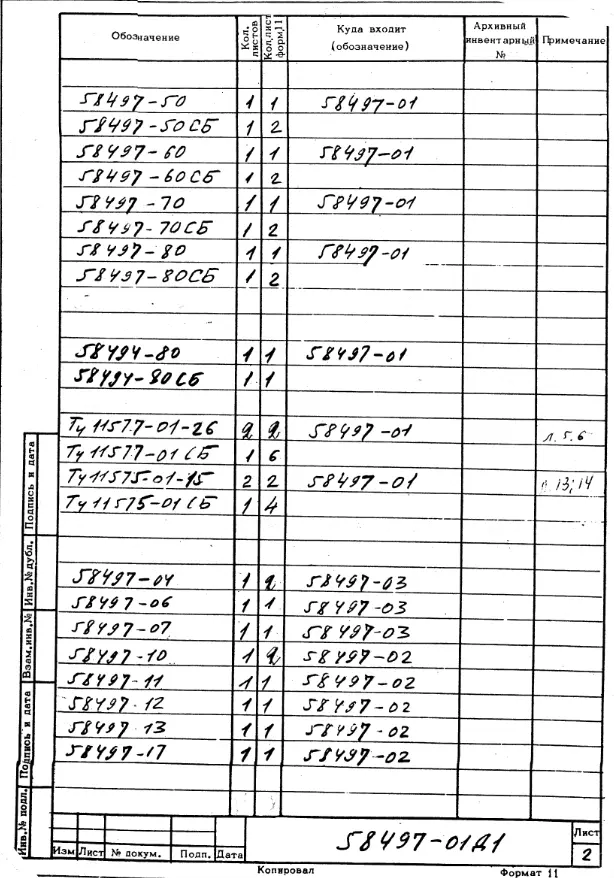 Обозначение Кол. листов Кол. лист форм. 11 Куда входит (обозначение) Архивный инвентарный № Примечание
58497-50 1 1 58497-01
58497-50СБ 1 2
58497-60 1 1 58497-01
58497-60СБ 1 2
58497-70 1 1 58497-01
58497-70СБ 1 2
58497-80 1 1 58497-01
58497-80СБ 1 2
58494-80 1 1 58497-01
58494-80СБ 1 1
Ту11577-01-26 2 2 58497-01 л. 5.6
Ту11577-01СБ 1 6
Ту11575-01-15 2 2 58497-01 13; 14
Ту11575-01СБ 1 4
58497-04 1 2 58497-03
58497-06 1 1 58497-03
58497-07 1 1 58497-03
58497-10 1 2 58497-02
58497-11 1 1 58497-02
58497-12 1 1 58497-02
58497-13 1 1 58497-02
58497-17 1 1 58497-02
Инв.№ подл. Подпись и дата Взам.инв.№ Инв.№дубл. Подпись и дата
58497-01Д1
Лист
2
Изм Лист № докум. Подп. Дата
Копировал Формат 11